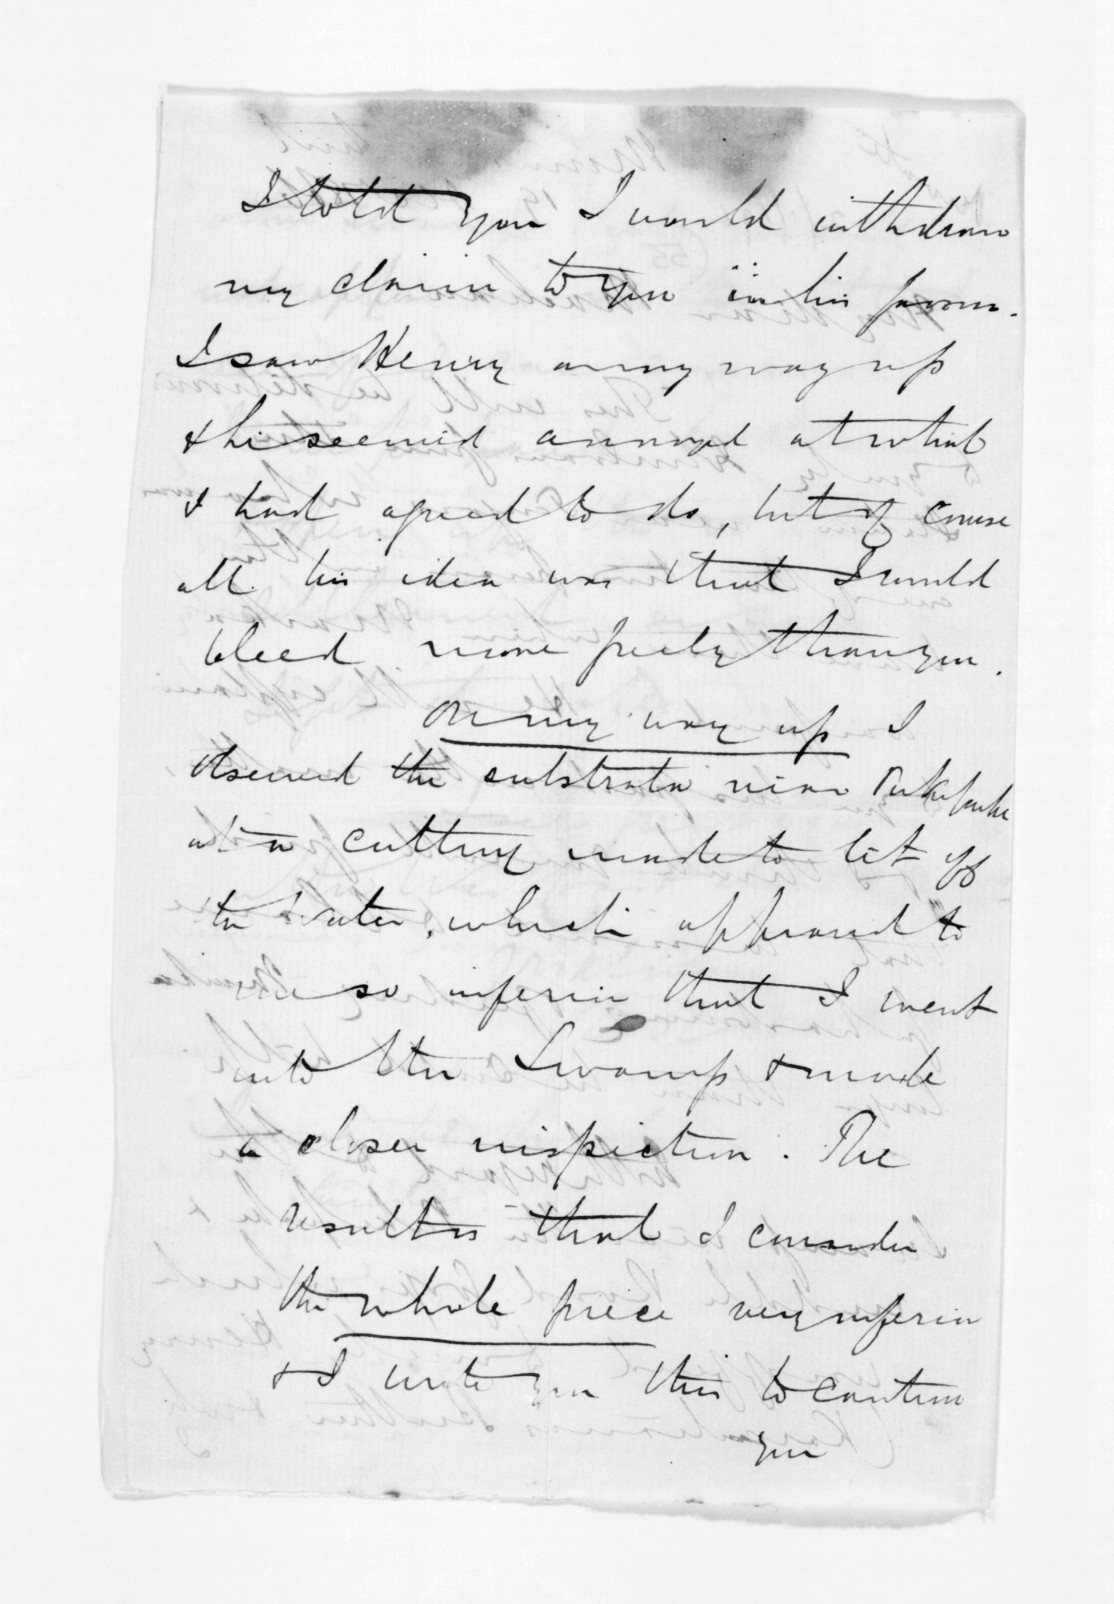 I told you I would withdraw
my claim to you in his favour.
I saw Henry on my way up
& he seemed annoyed at what
I had agreed to do, but of course
all his idea was that I would
bleed more freely than you.
On my way up I
observed the substrata near Pukapuka
at a cutting made to let off
the water, which appeared to
me so inferior that I went
into the Swamp & made
a closer inspection. The
result is that I consider
the whole piece very inferior
& I write you this to caution
you